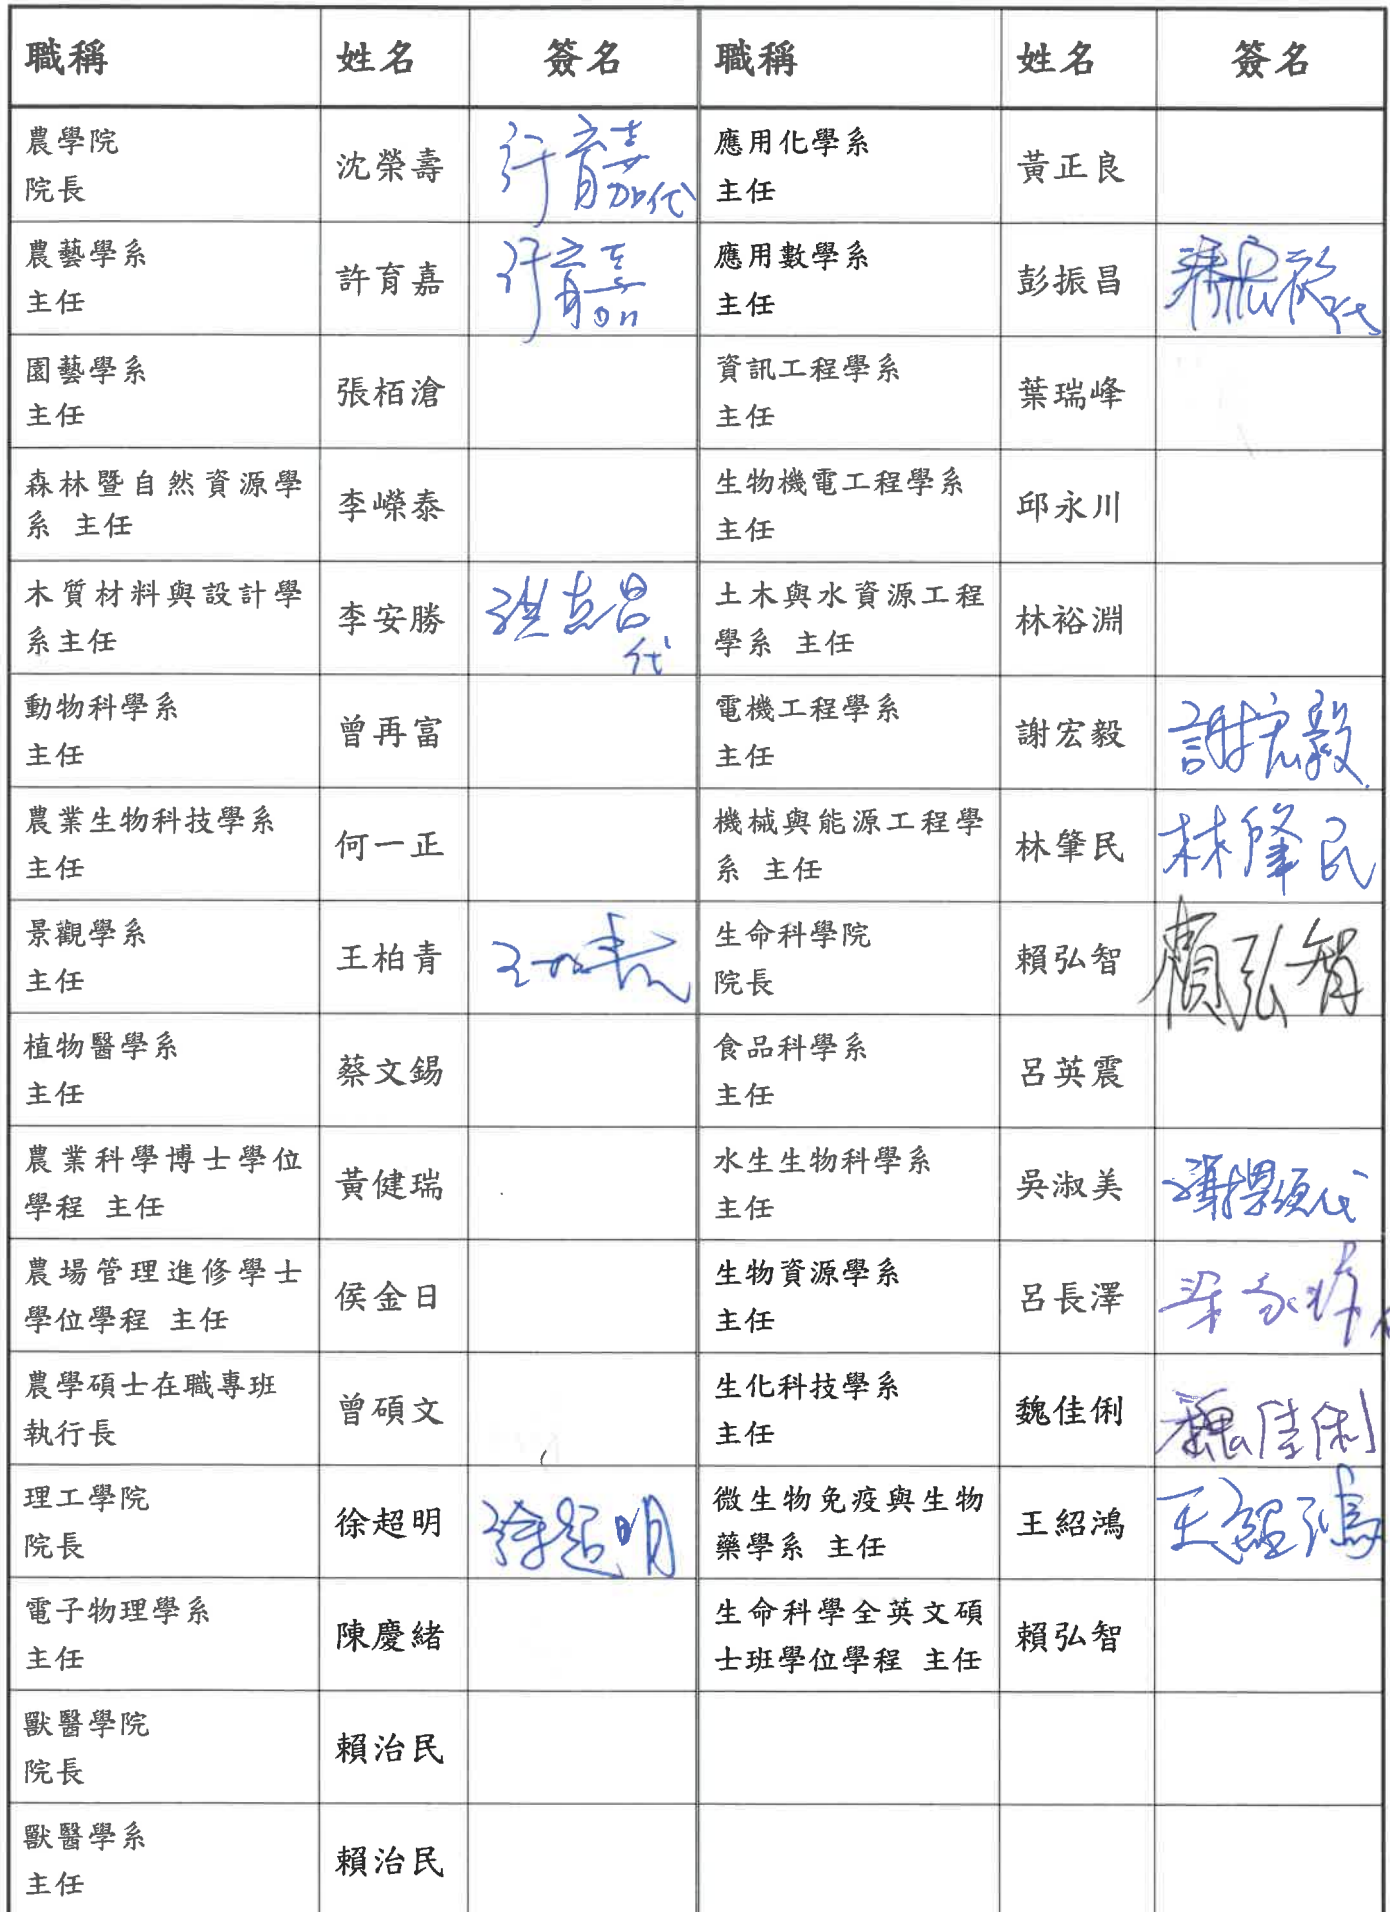 職稱 姓名 簽名 職稱 姓名 簽名
農學院
院長 沈榮壽 許育嘉代 應用化學系
主任 黃正良
農藝學系
主任 許育嘉 許育嘉 應用數學系
主任 彭振昌 代
園藝學系
主任 張栢滄 資訊工程學系
主任 葉瑞峰
森林暨自然資源學
系 主任 李嶸泰 生物機電工程學系
主任 邱永川
木質材料與設計學
系主任 李安勝 代 土木與水資源工程
學系 主任 林裕淵
動物科學系
主任 曾再富 電機工程學系
主任 謝宏毅 謝宏毅
農業生物科技學系
主任 何一正 機械與能源工程學
系 主任 林肇民 林肇民
景觀學系
主任 王柏青 王柏青 生命科學院
院長 賴弘智 賴弘智
植物醫學系
主任 蔡文錫 食品科學系
主任 呂英震
農業科學博士學位
學程 主任 黃健瑞 水生生物科學系
主任 吳淑美 代
農場管理進修學士
學位學程 主任 侯金日 生物資源學系
主任 呂長澤
農學碩士在職專班
執行長 曾碩文 生化科技學系
主任 魏佳俐 魏佳俐
理工學院
院長 徐超明 徐超明 微生物免疫與生物
藥學系 主任 王紹鴻 王紹鴻
電子物理學系
主任 陳慶緒 生命科學全英文碩
士班學位學程 主任 賴弘智
獸醫學院
院長 賴治民
獸醫學系
主任 賴治民